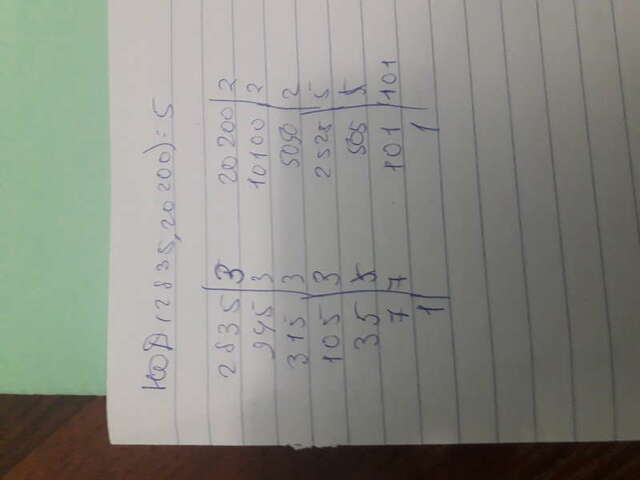 НОД (2835, 20200) = 5
2835 | 3 20200 | 2
945 | 3 10100 | 2
315 | 3 5050 | 2
105 | 3 2525 | 5
35 | 5 505 | 5
7 | 7 101 | 101
1 | 1